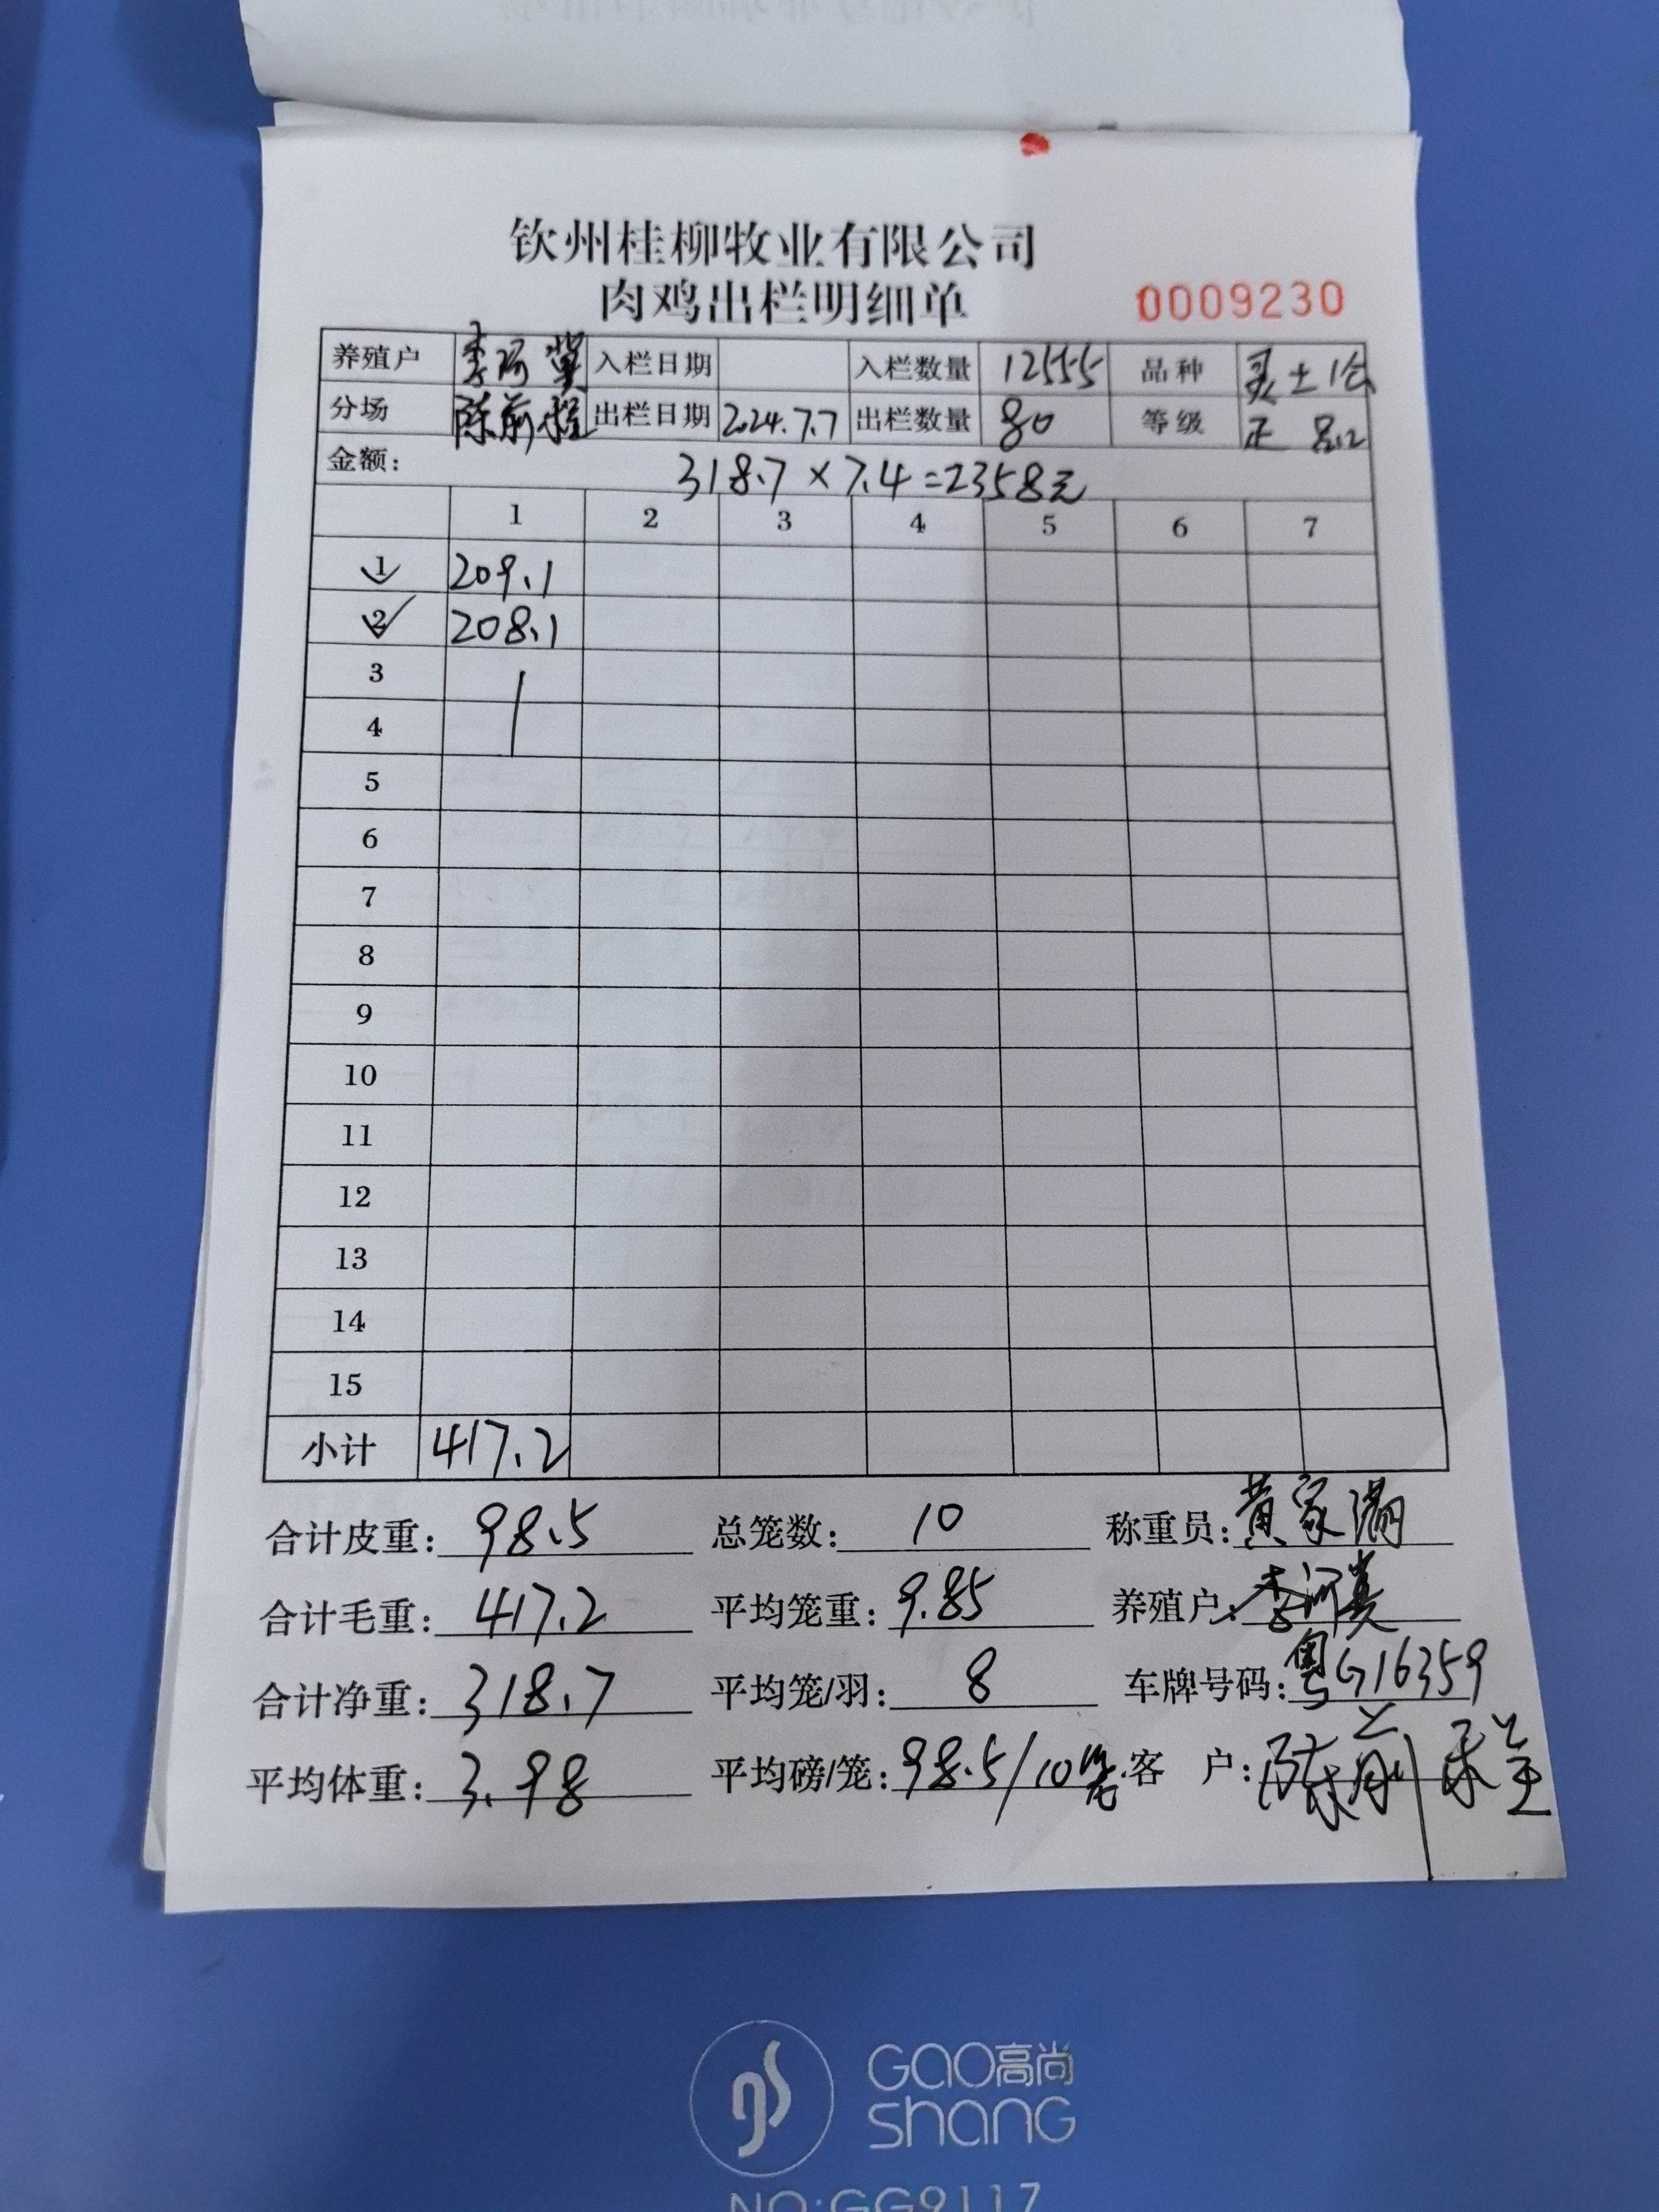 钦州桂柳牧业有限公司
肉鸡出栏明细单 0009230
养殖户 李河 入栏日期 入栏数量 12555 品种 土1公
分场 陈前程 出栏日期 2024.7.7 出栏数量 80 等级 正 品
金额: 318.7×7.4=2358元
1 2 3 4 5 6 7
1 209.1
2 208.1
3
4
5
6
7
8
9
10
11
12
13
14
15
小计 417.2
合计皮重: 98.5 总笼数: 10 称重员: 黄家满
合计毛重: 417.2 平均笼重: 9.85 养殖户: 李河
合计净重: 318.7 平均笼/羽: 8 车牌号码: 粤G16359
平均体重: 3.98 平均磅/笼: 98.5/10笼 客 户: 陈前
GAO高尚
ShanG
NO:GG9117